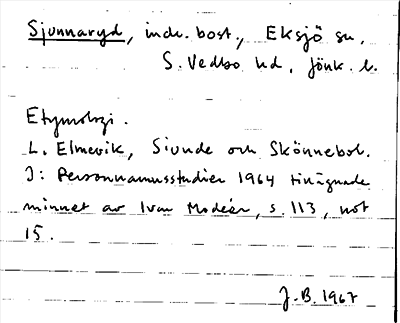 Sjunnaryd, indr. bost., Eksjö sn.
S. Vedbo hd. Jönk. l.
Etymologi.
L. Elmevik, Siunde och Skönnebol.
I: Personnamnsstudier 1964 tillägnade
minnet av Ivar Modéer, s. 113, not
15.
J.B. 1967